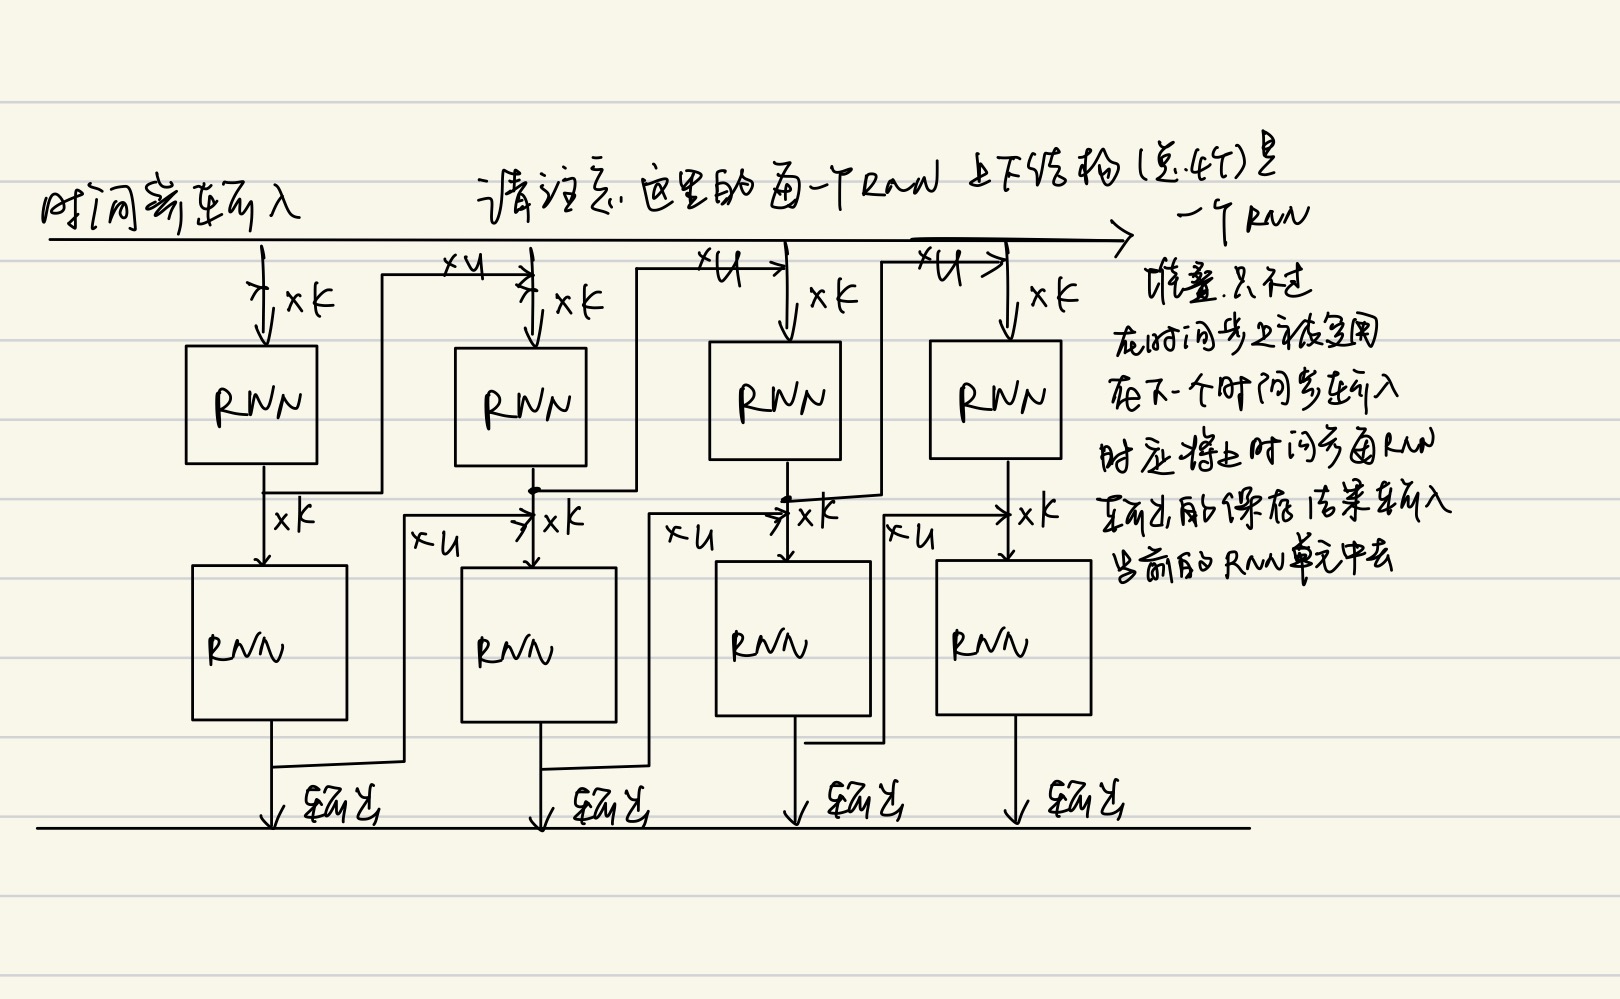 时间步输入
请注意.这里的每一个RNN 上下结构(总.4个)是
一个RNN
堆叠.只不过
在时间步上被复用
在下一个时间步在输入
时应将上时间步每RNN
输出的保存结果输入
当前的RNN单元中去
xU xU xU
xK xK xK xK
RNN RNN RNN RNN
xK xK xK xK
xU xU xU
RNN RNN RNN RNN
输出 输出 输出 输出